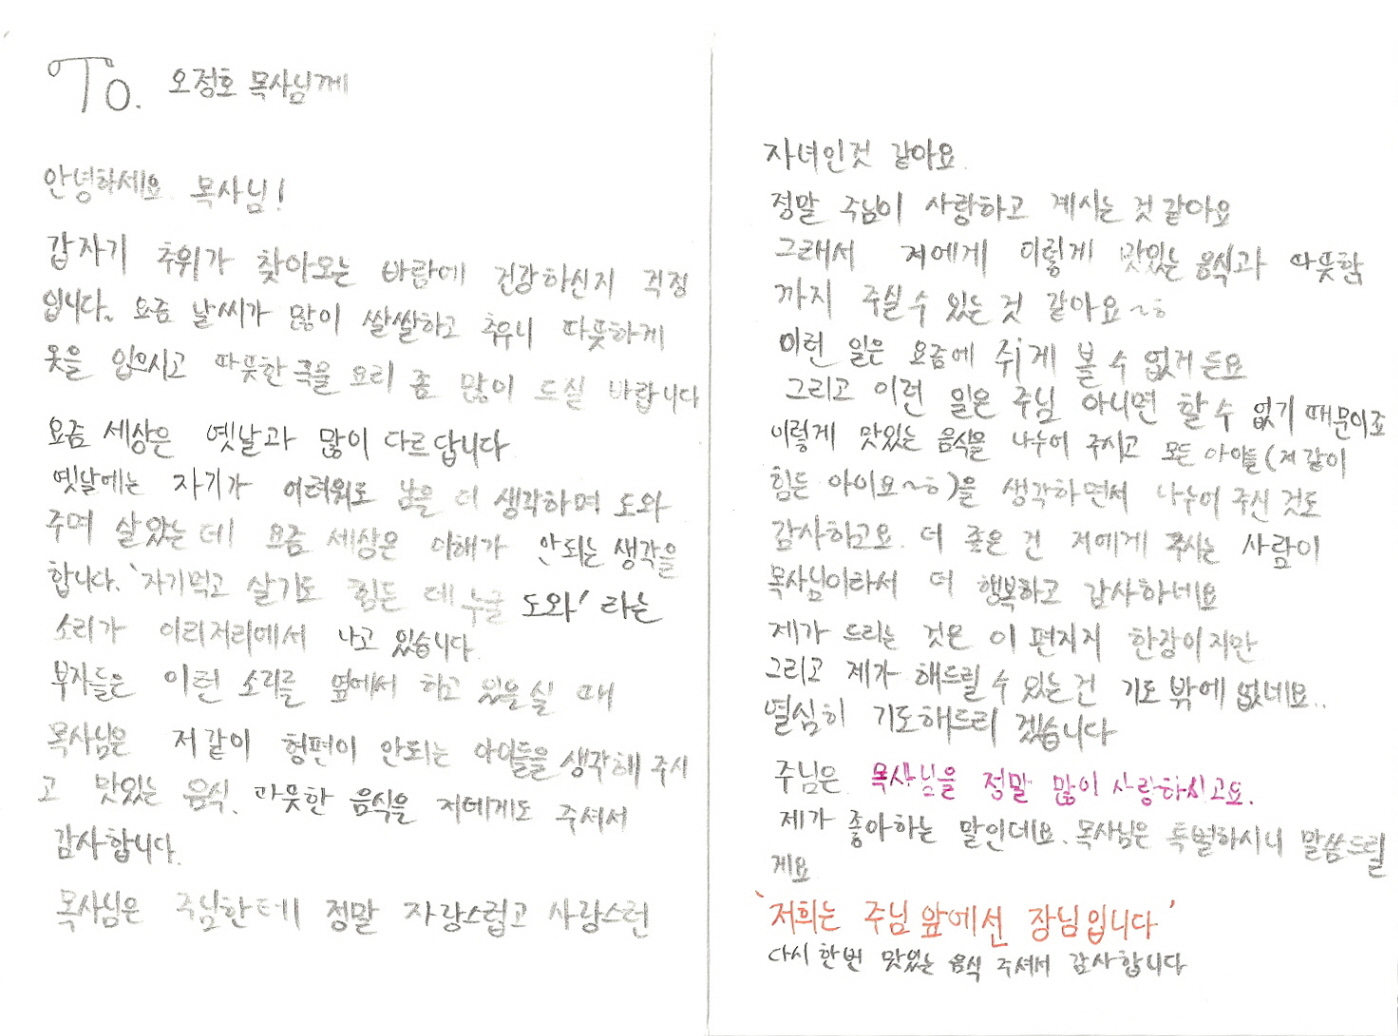 To. 오정호 목사님께
안녕하세요 목사님!
갑자기 추위가 찾아오는 바람에 건강하신지 걱정
입니다. 요즘 날씨가 많이 쌀쌀하고 추우니 따뜻하게
옷을 입으시고 따뜻한 국을 요리 좀 많이 드실 바랍니다
요즘 세상은 옛날과 많이 다르답니다
옛날에는 자기가 어려워도 남을 더 생각하며 도와
주며 살았는데 요즘 세상은 이해가 안되는 생각을
합니다. '자기먹고 살기도 힘든데 누굴 도와' 라는
소리가 이리저리에서 나고 있습니다.
부자들은 이런 소리를 옆에서 하고 있을 실 때
목사님은 저같이 형편이 안되는 아이들을 생각해 주시
고 맛있는 음식. 따뜻한 음식을 저에게도 주셔서
감사합니다.
목사님은 주님한테 정말 자랑스럽고 사랑스런
자녀인것 같아요.
정말 주님이 사랑하고 계시는 것 같아요
그래서 저에게 이렇게 맛있는 음식과 따뜻함
까지 주실수 있는 것 같아요~ㅎ
이런 일은 요즘에 쥐게 볼 수 없거든요
그리고 이런 일은 주님 아니면 할 수 없기 때문이죠
이렇게 맛있는 음식을 나누어 주시고 모든 아이들(저 같이
힘든 아이요~ㅎ)을 생각하면서 나누어 주신 것도
감사하고요. 더 좋은 건 저에게 주시는 사람이
목사님이라서 더 행복하고 감사하네요
제가 드리는 것은 이 편지지 한장이지만
그리고 제가 해드릴 수 있는건 기도 밖에 없네요..
열심히 기도해드리 겠습니다
주님은 목사님을 정말 많이 사랑하시고요.
제가 좋아하는 말인데요. 목사님은 특별하시니 말씀드릴
게요
'저희는 주님 앞에선 장님입니다'
다시 한번 맛있는 음식 주셔서 감사합니다